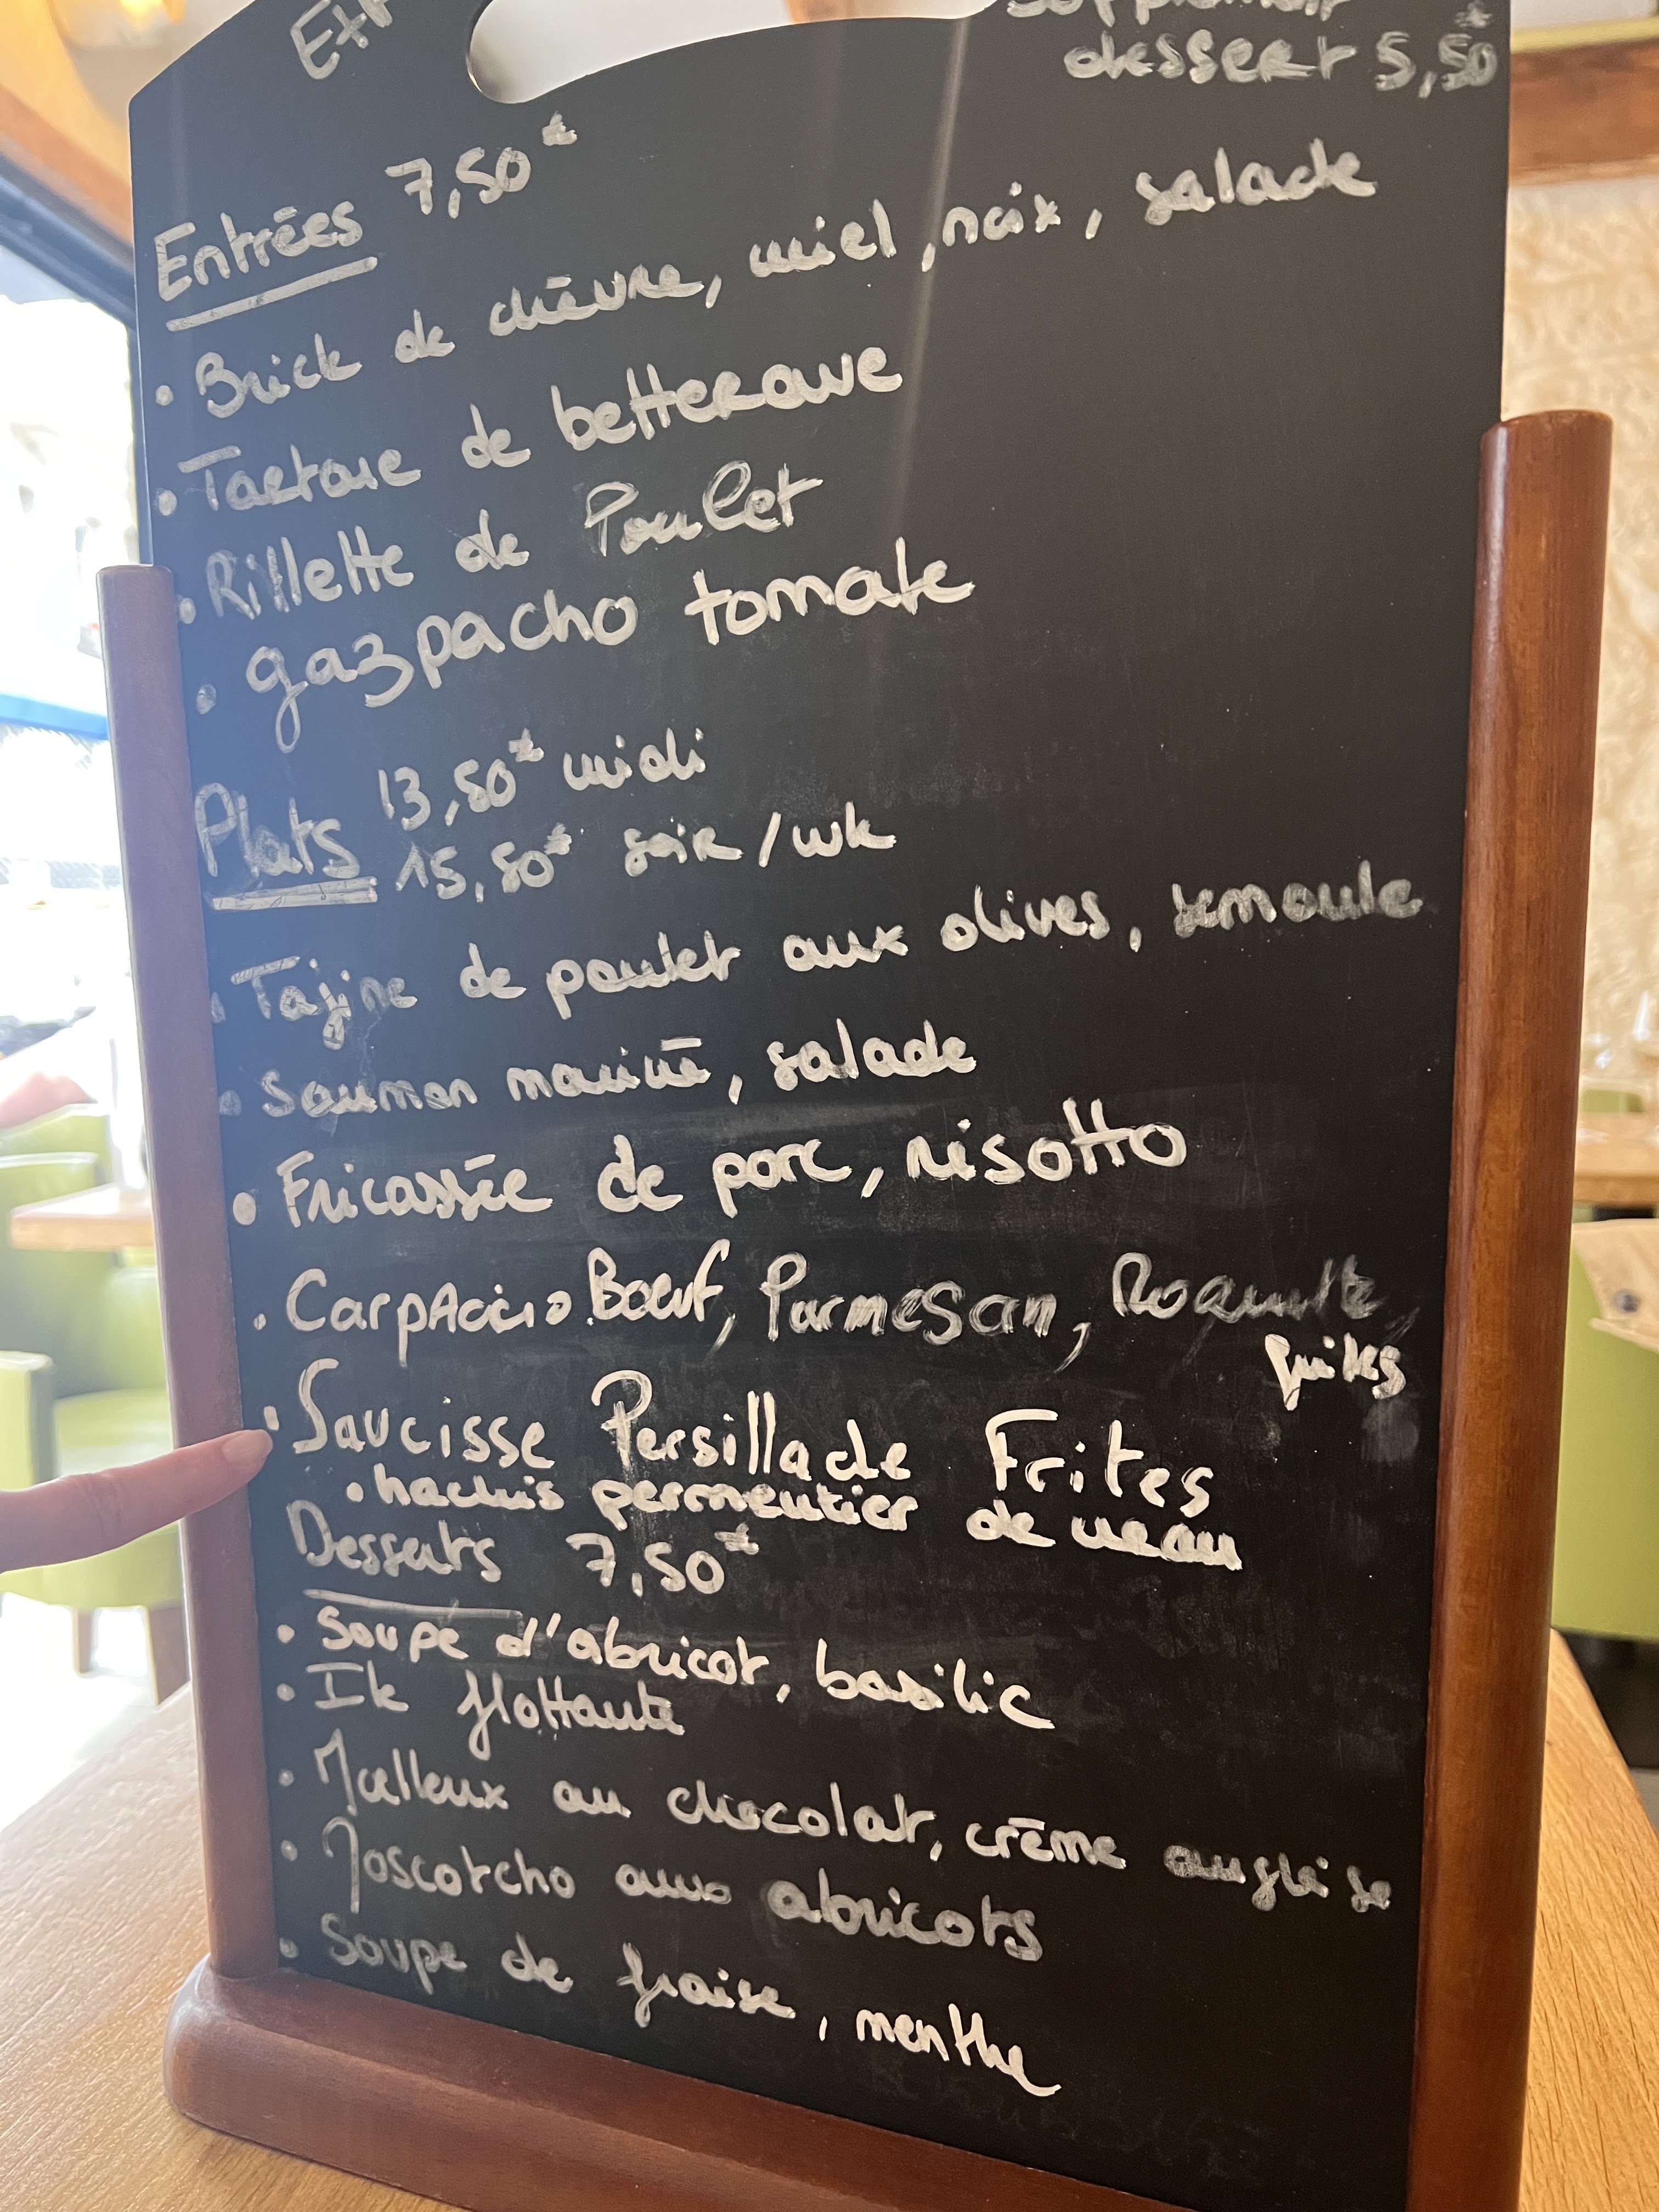 dessert 5,50€
Entrées 7,50€
• Brick de chèvre, miel, noix, salade
• Tartare de betterave
• Rillette de Poulet
• gazpacho tomate
Plats 13,50€ midi
15,50€ soir/wk
• Tajine de poulet aux olives, semoule
• Saumon mariné, salade
• Fricassée de porc, risotto
• Carpaccio Boeuf, Parmesan, Roquette,
frites
• Saucisse Persillade Frites
• hachis permentier de veau
Desserts 7,50€
• Soupe d'abricot, basilic
• Ile flottante
• Moelleux au chocolat, crème anglaise
• aux abricots
• Soupe de fraise, menthe